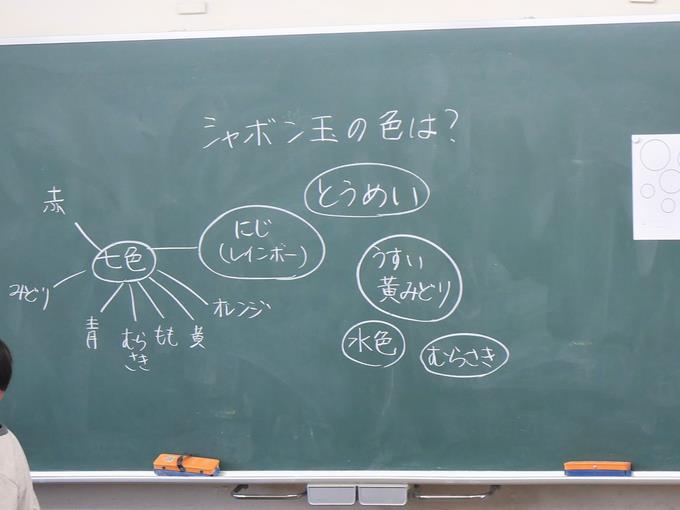 シャボン玉の色は?
とうめい
赤
にじ
(レインボー)
七色
みどり
青
むら
さき
もも
黄
オレンジ
うすい
黄みどり
水色
むらさき